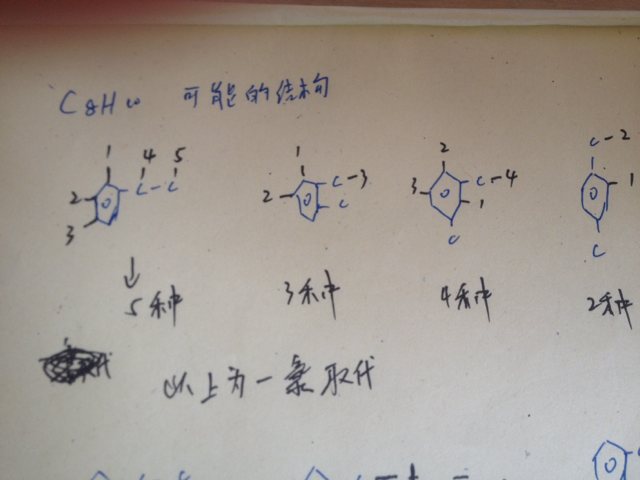 C8H10 可能的结构
1 4 5
2 C-C
3
1
2 C-3
C
2
3 C-4
1
C
C-2
1
C
↓
5种 3种 4种 2种
以上为一氯取代